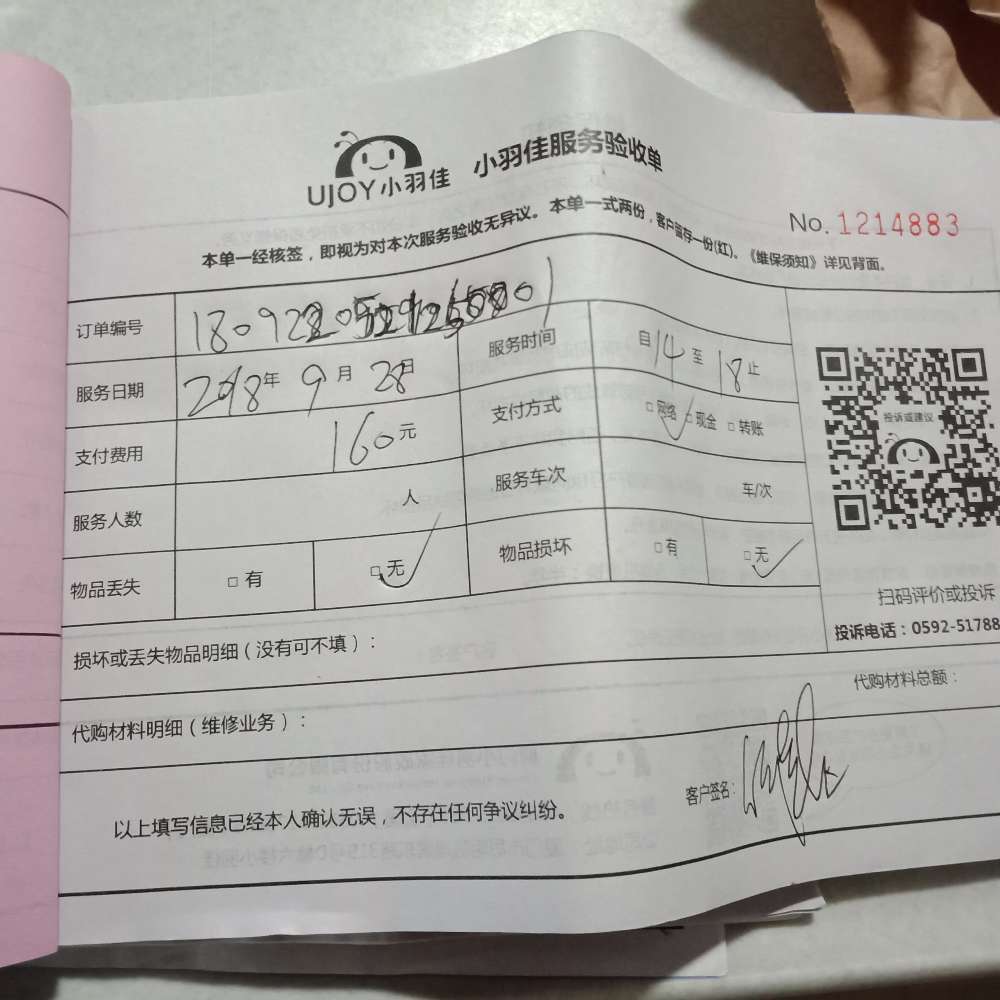 UJOY小羽佳 小羽佳服务验收单
No. 1214883
本单一经核签，即视为对本次服务验收无异议。本单一式两份，客户留存一份(红)。《维保须知》详见背面。
订单编号
服务日期 2018年 9月 28日 服务时间 自14至18止
支付费用 160元 支付方式 □网络 □现金 □转账
服务人数 人 服务车次 车/次
物品丢失 □有 □无 物品损坏 □有 □无
投诉或建议
扫码评价或投诉
投诉电话：0592-51788
损坏或丢失物品明细（没有可不填）：
代购材料明细（维修业务）： 代购材料总额：
以上填写信息已经本人确认无误，不存在任何争议纠纷。 客户签名：